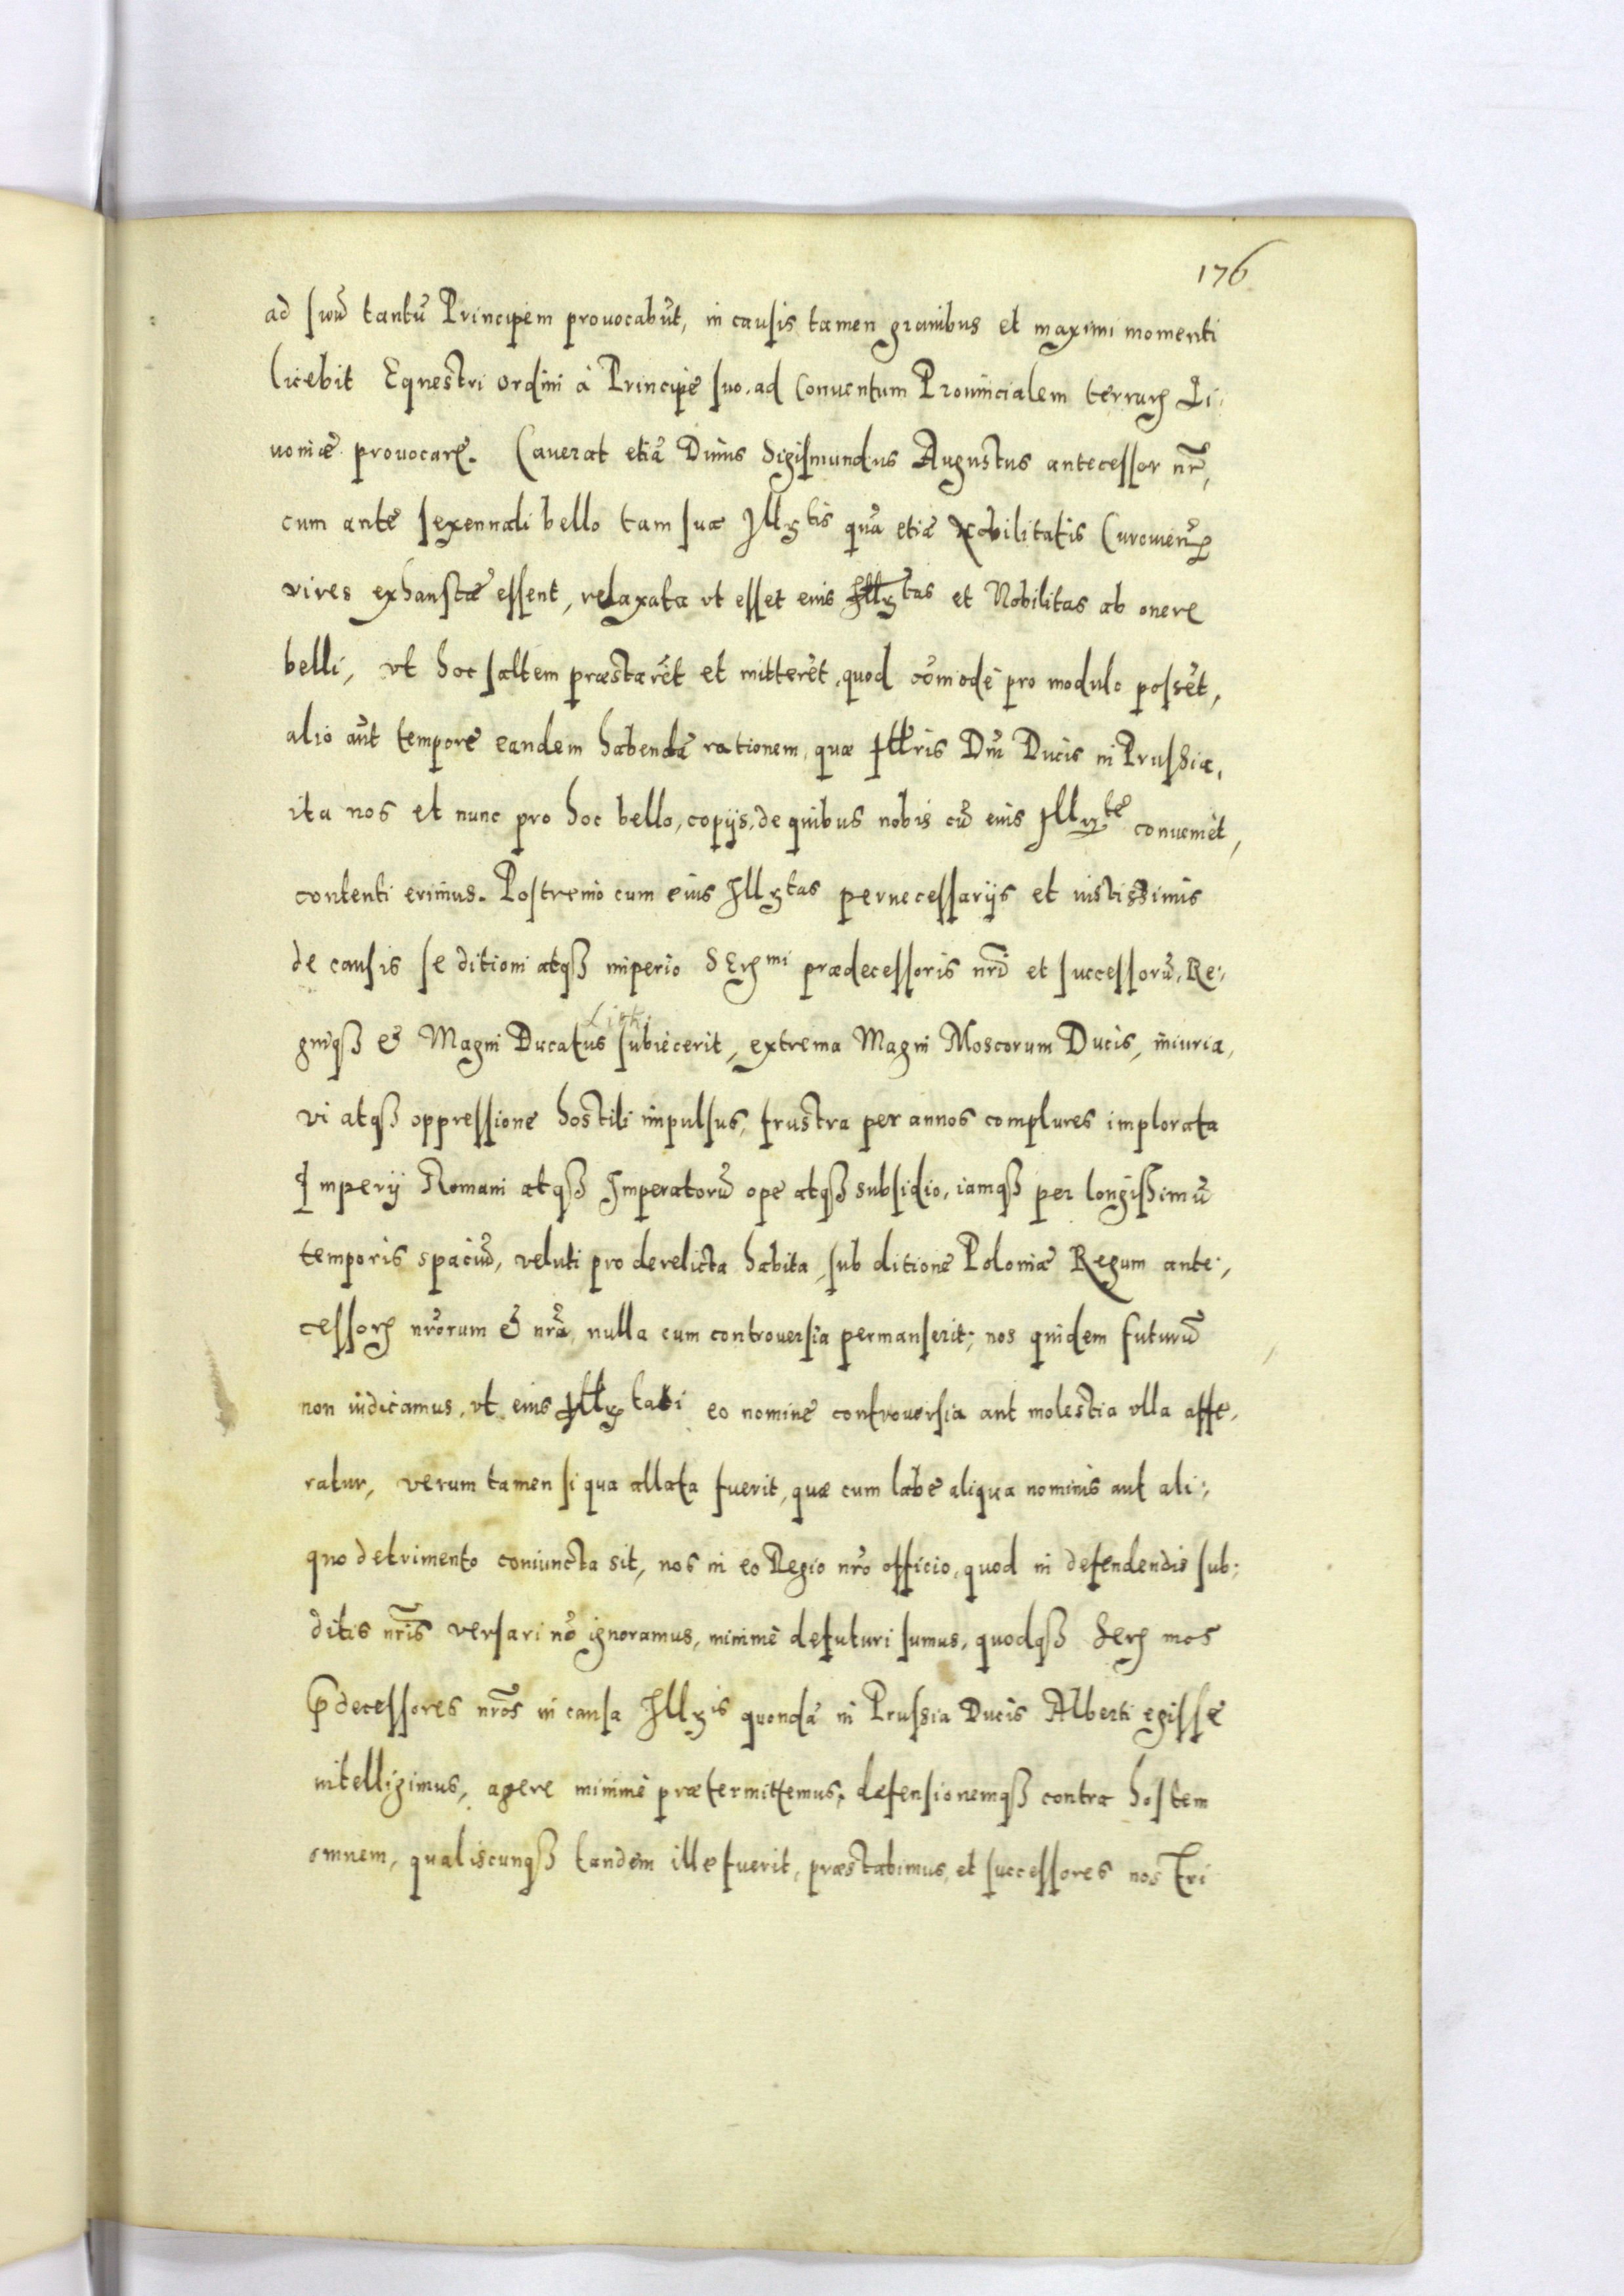 176
ad suũ tantũ Principem prouocabũt, in causis tamen grauibus et maximi momenti
licebit Equestri ordini à Principe suo ad Conuentum Prouincialem terraꝝ Li-
uoniæ prouocare. Cauerat etiã Diuus Sigismundus Augustus antecessor nr̃,
cum ante sexennali bello tam suæ Illꝝtis quã etiã Nobilitatis Curonieñ
vires exhaustæ essent, relaxata vt esset eius Illꝝtas et Nobilitas ab onere
belli, vt hoc saltem præstarẽt et mitterẽt, quod cõmodè pro modulo possẽt,
alio aũt tempore eandem habendã rationem, quæ Illris Dñi Ducis in Prussia,
ita nos et nunc pro hoc bello, copijs, de quibus nobis cũ eius Illꝝte conuenit,
contenti erimus. Postremò cum eius Illꝝtas pernecessarijs et iustissimis
de causis se ditioni atqꝫ imperio Serꝝmi prædecessoris nr̃i et successorũ, Re-
gniqꝫ & Magni Ducatus Lith: subiecerit, extrema Magni Moscorum Ducis, iniuria,
vi atqꝫ oppressione hostili impulsus, frustra per annos complures implorata
Imperij Romani atqꝫ Imperatorũ ope atqꝫ subsidio, iamqꝫ per longissimũ
temporis spaciũ, veluti pro derelicta habita, sub ditione Poloniæ Regum ante-
cessoꝝ nr̃orum & nr̃a, nulla cum controuersia permanserit; nos quidem futurũ
non iudicamus, vt eius Illꝝtati eo nomine controuersia aut molestia vlla affe-
ratur, verum tamen si qua allata fuerit, quæ cum labe aliqua nominis aut ali-
quo detrimento coniuncta sit, nos in eo Regio nr̃o officio, quod in defendendis sub-
ditis nr̃is versari nõ ignoramus, minimè defuturi sumus, quodqꝫ Serꝝmos
p̃decessores nr̃os in causa Illꝝis quondã in Prussia Ducis Alberti egisse
intelligimus, agere minimè prætermittemus, defensionemqꝫ contra hostem
omnem, qualiscunqꝫ tandem ille fuerit, præstabimus, et successores nostri